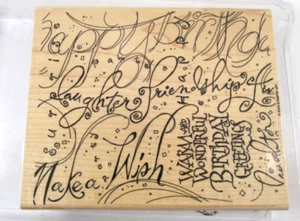 Happy Birthday
Laughter Friendship
WARM AND
WONDERFUL
BIRTHDAY
GREETINGS
Make a Wish